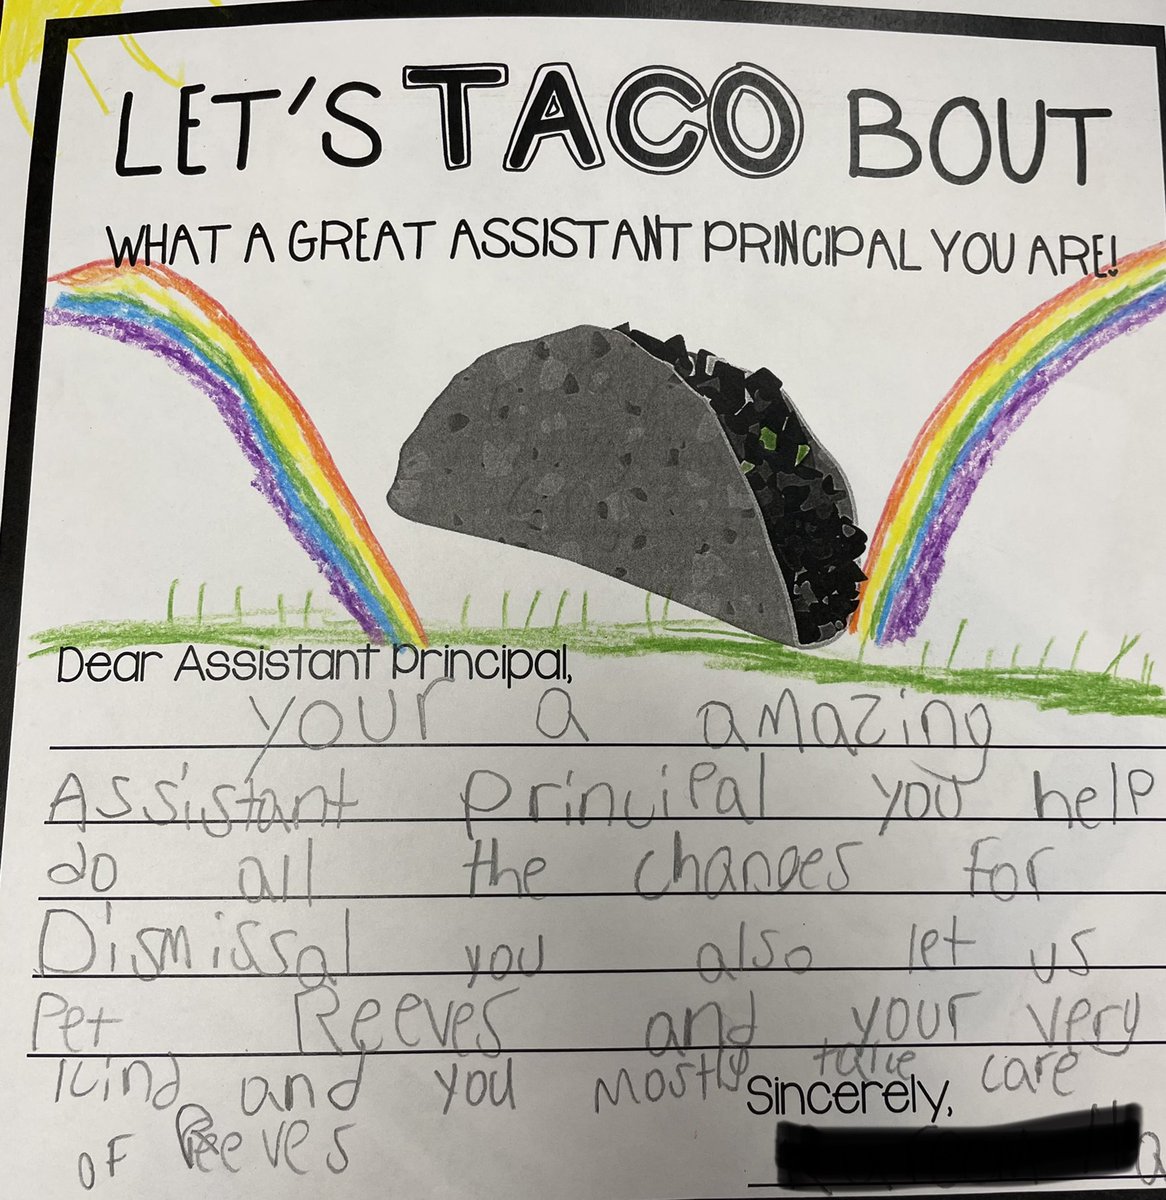 LET'S TACO BOUT
WHAT A GREAT ASSISTANT PRINCIPAL YOU ARE!
Dear Assistant Principal,
your a amazing
Assistant principal you help
do all the changes for
Dismissal you also let us
Pet Reeves and your very
kind and you mostly take care
of Reeves
Sincerely,